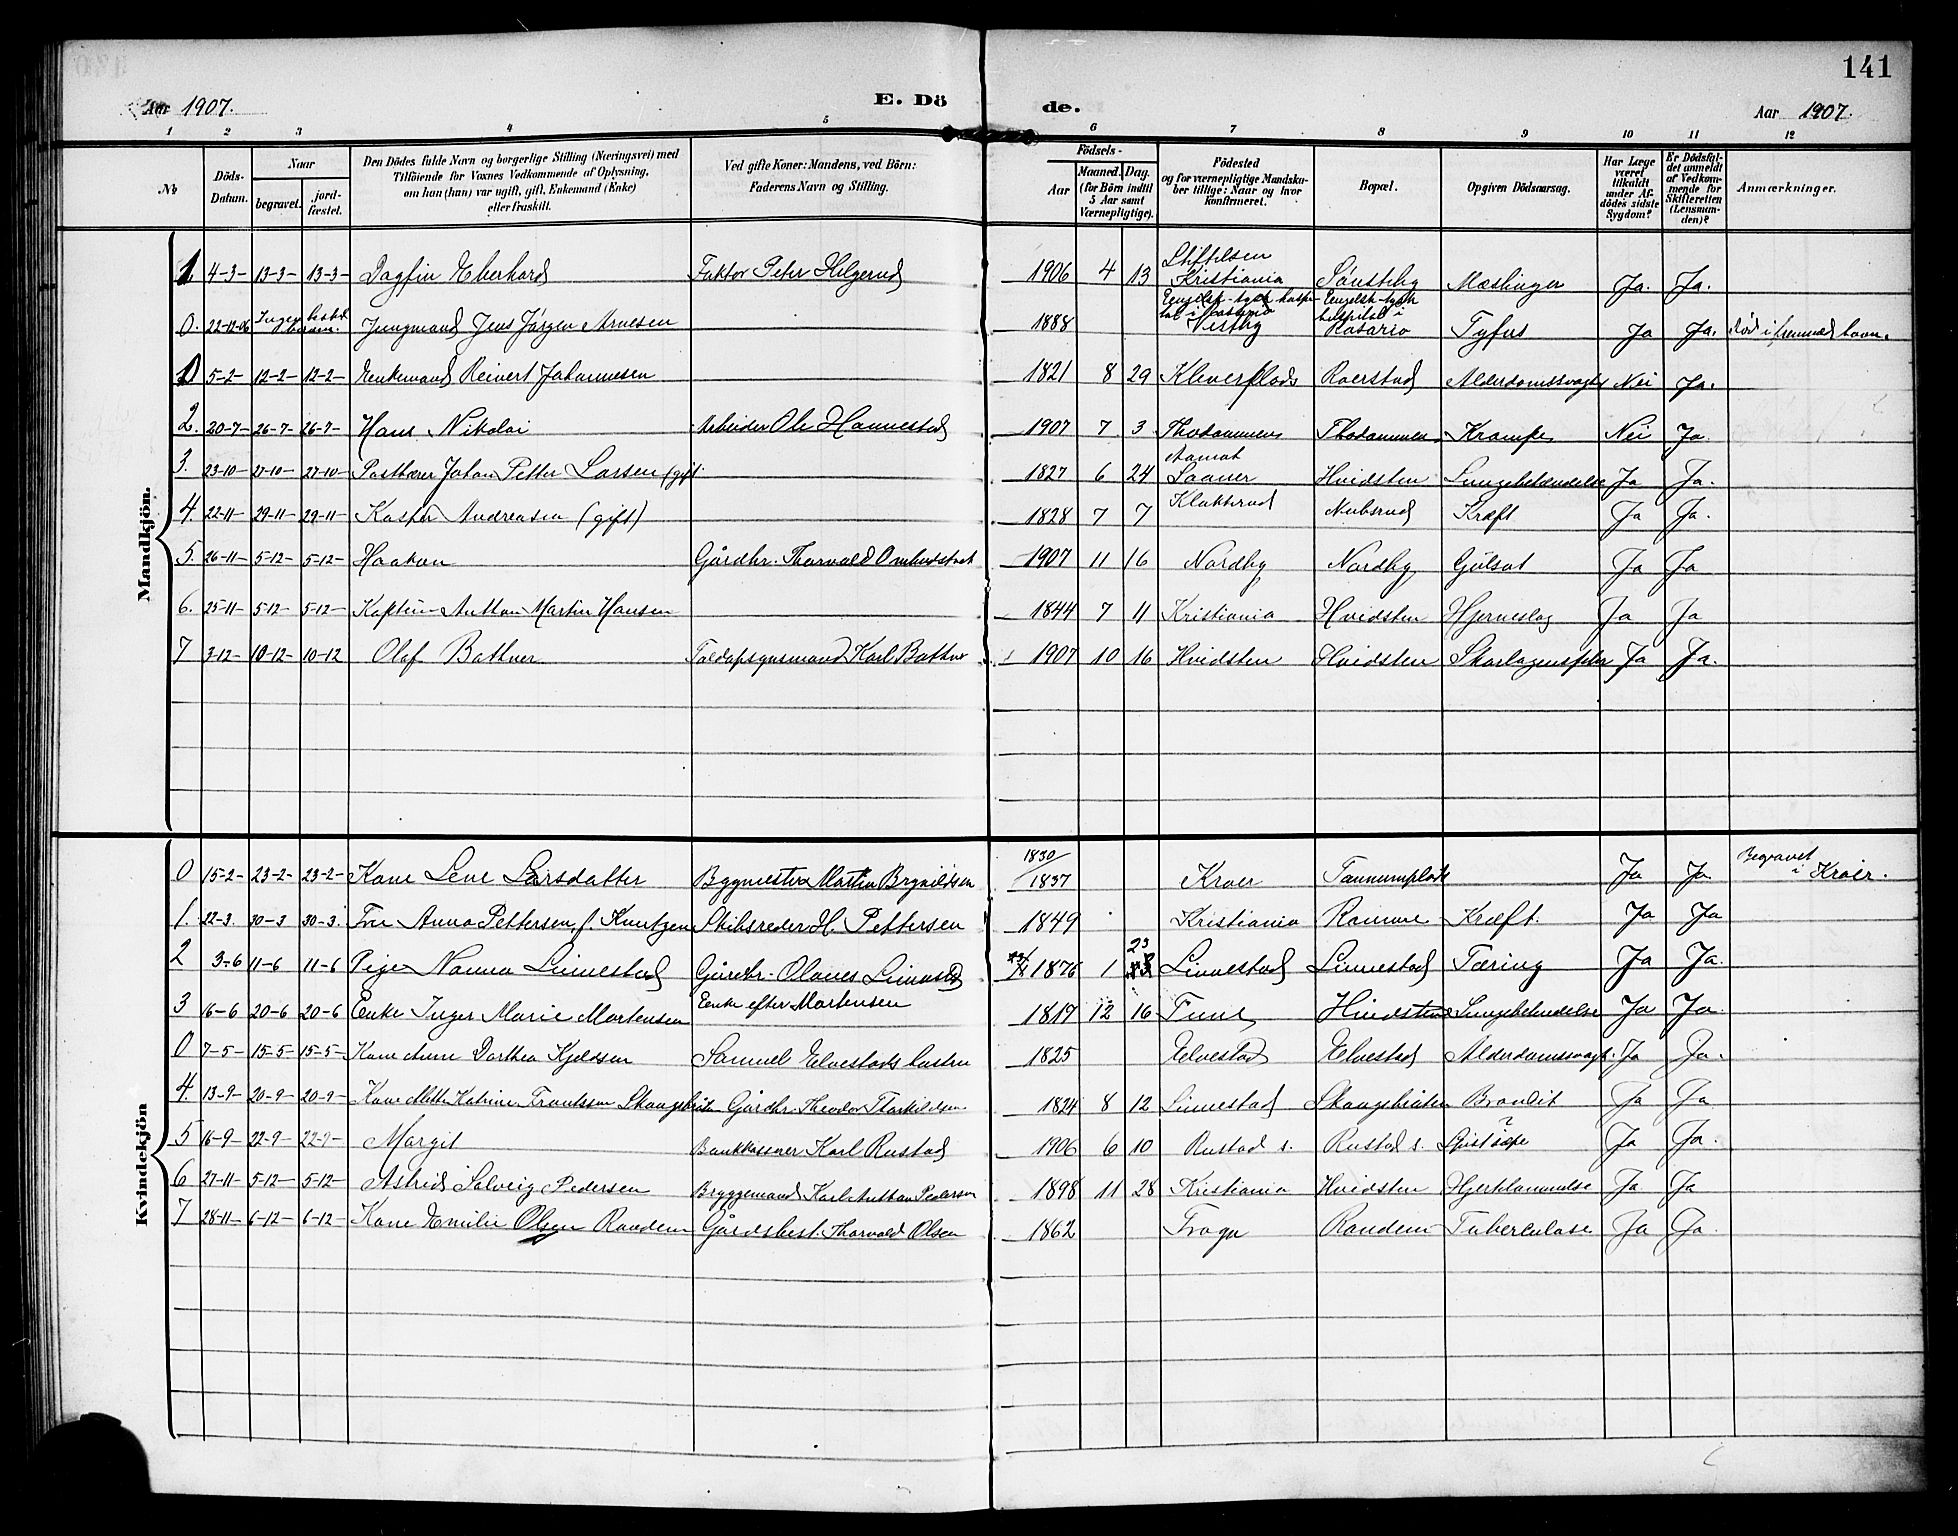 141
Aar 1907.
E. Döde.
Aar 1907.
1 2 3 4 5 6 7 8 9 10 11 12
No
Döds-Datum.
Naar begravet. jord-fæstet.
Den Dödes fulde Navn og borgerlige Stilling (Næringsvei) med Tilföiende for Voxnes Vedkommende af Oplysning, om han (hun) var ugift, gift, Enkemand (Enke) eller fraskilt.
Ved gifte Koner: Mandens, ved Börn: Faderens Navn og Stilling.
Födsels- Aar Maaned. Dag. (for Börn indtil 5 Aar samt Værnepligtige).
Födested og for værnepligtige Mandskaber tillige: Naar og hvor konfirmeret.
Bopæl.
Opgiven Dödsaarsag.
Har Læge været tilkaldt under Afdödes sidste Sygdom?
Er Dödsfaldet anmeldt af Vedkommende for Skifteretten (Lensmanden)?
Anmærkninger.
Mandkjön.
1 4-3- 13-3- 13-3- Dagfin Eberhard Faktor Peter Helgerud 1906 4 13 Stiftelsen Kristiania Sønsteby Mæslinger Ja. Ja.
0. 22-12-06 Jungmand Jens Jørgen Arnesen 1888 Vestby Engelsk-tysk hospital i Rosario Tyfus Ja Ja. død i fremmed havn.
0 5-2- 12-2- 12-2- Enkemand Reinert Johannesen 1821 8 29 Kleverplads Roerstad Alderdomssvagh. Nei Ja.
2. 20-7- 26-7- 26-7- Hans Nikolai Arbeider Ole Hannestad 1907 7 3 Thodammen Thodammen Krampe Nei Ja.
3. 23-10 27-10- 27-10- Postbærer Johan Petter Larsen (gift 1827 6 24 Saaner Hvidsten Lungebetændelse Ja Ja.
4. 22-11- 29-11- 29-11- Kasper Andreasen (gift) 1828 7 7 Klokkerud Nubsrud Kræft Ja Ja.
5. 26-11- 5-12- 5-12- Haakon Gårdbr. Thorvald 1907 11 16 Nordby Nordby Gulsot Ja Ja
6. 25-11- 5-12- 5-12- Kaptein Anton Martin Hansen 1844 7 11 Kristiania Hvidsten Hjerneslag Ja Ja
7 3-12- 10-12- 10-12 Olaf Bathner Toldopsynsmand Karl Bathner 1907 10 16 Hvidsten Hvidsten Skarlagensfeber Ja Ja.
Kvindekjön
0 15-2- 23-2- 23-2- Kone Lene Larsdatter Bygmester Martin Brynildsen 1830/1837 Kroer Tannumplads Ja Ja Begravet i Kroer.
1. 22-3. 30-3 30-3. Fru Anna Pettersen, f. Knutzen Skibsreder H. Pettersen 1849 Kristiania Ramme Kræft. Ja Ja
2 3-6 11-6 11-6 Pige Nanna Linnestad Gårdbr. Olaves Linnestad 1876 1 23 Linnestad Linnestad Tæring Ja Ja.
3 16-6 20-6 20-6 Enke Inger Marie Mortensen Enke efter Mortensen 1817 12 16 Hvidsten Lungebetændelse Ja Ja.
0 7-5- 15-5- 15-5- Kone Anne Dorthea Kjeldsen Samuel Elvestads hustru 1825 Elvestad Elvestad Alderdomssvagh. Ja Ja.
4. 13-9- 20-9- 20-9- Kone Mette Katrine Frantsen Skaugbråten Gårdbr. Theodor Torkildsen 1824 8 12 Linnestad Skaugbråten Bronkit Ja Ja
5 16-9 22-9 22-9- Margit Bankkasserer Karl Rustad 1906 6 10 Rustad s. Rustad s. ? Ja Ja.
6 27-11- 5-12- 5-12- Astrid Solveig Pedersen Bryggemand Karl Anthon Pedersen 1898 11 28 Kristiania Hvidsten Hjertelammelse Ja Ja
7 28-11- 6-12- 6-12- Kone Emilie Olsen Randem Gårdsbest. Thorvald Olsen 1862 Frogn Randem Tuberculose Ja Ja.